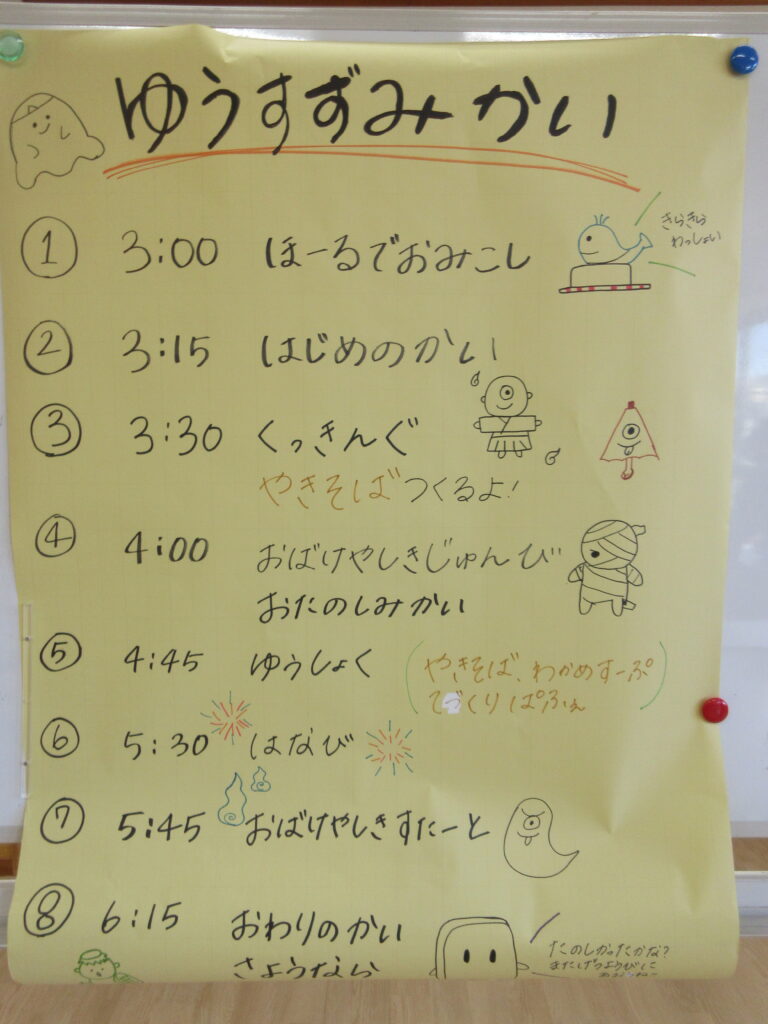 ゆうすずみかい
① 3:00 ほーるでおみこし
きらきら
わっしょい
② 3:15 はじめのかい
③ 3:30 くっきんぐ
やきそばつくるよ!
④ 4:00 おばけやしきじゅんび
おたのしみかい
⑤ 4:45 ゆうしょく (やきそば、わかめすーぷ
てづくりぱふぇ)
⑥ 5:30 はなび
⑦ 5:45 おばけやしきすたーと
⑧ 6:15 おわりのかい
さようなら
たのしかったかな?
またげつようびに